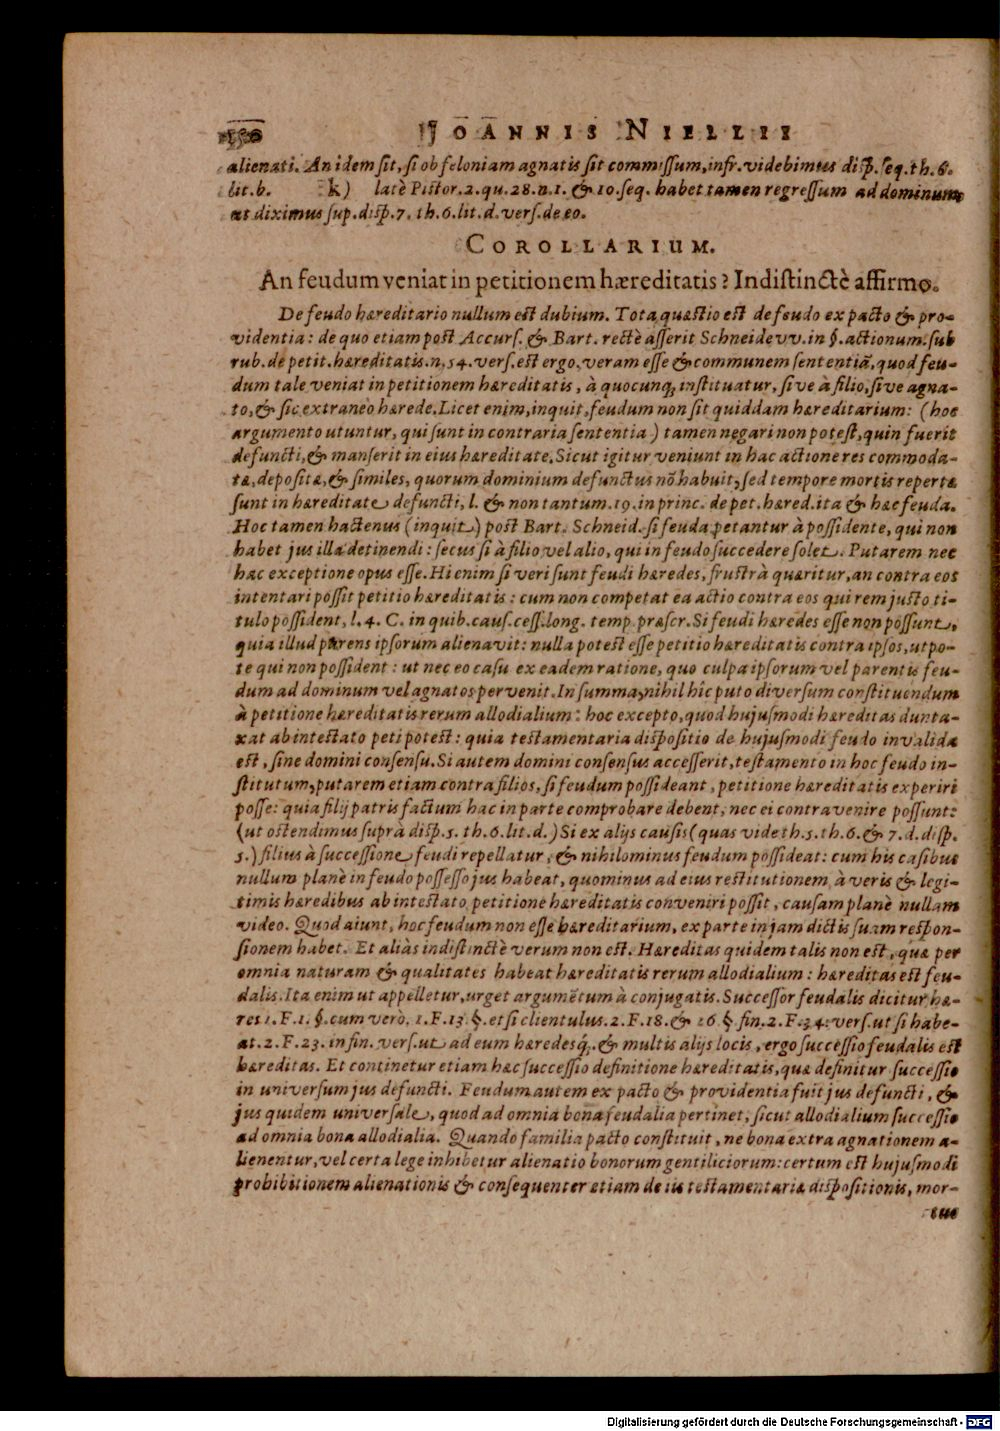 JOANNIS NIELLII
alienati. An idem sit, si ob feloniam agnatis sit commissum, infr. videbimus disp. seq. th. 6.
lit. b. k) latè Pistor. 2. qu. 28. n. 1. & 10. seq. habet tamen regressum ad dominum
ut diximus sup. disp. 7. th. 6. lit. d. vers. de eo.
COROLLARIUM.
An feudum veniat in petitionem hæreditatis? Indistinctè affirmo.
De feudo hæreditario nullum est dubium. Tota quæstio est de feudo ex pacto & pro-
videntia: de quo etiam post Accurs. & Bart. rectè asserit Schneidevv. in §. actionum. sub
rub. de petit. hæreditatis. n. 54. vers. est ergo, veram esse & communem sententiã, quod feu-
dum tale veniat in petitionem hæreditatis, à quocunq; instituatur, sive à filio, sive agna-
to, & sic extraneo hærede. Licet enim, inquit, feudum non sit quiddam hæreditarium: (hoc
argumento utuntur, qui sunt in contraria sententia) tamen negari non potest, quin fuerit
defuncti, & manserit in eius hæreditate. Sicut igitur veniunt in hac actione res commoda-
tæ, depositæ, & similes, quorum dominium defunctus nõ habuit, sed tempore mortis repertæ
sunt in hæreditate defuncti, l. & non tantum. 19. in princ. de pet. hæred. ita & hæc feuda.
Hoc tamen hactenus (inquit) post Bart. Schneid. si feuda petantur à possidente, qui non
habet jus illa detinendi: secus si à filio vel alio, qui in feudo succedere solet. Putarem nec
hac exceptione opus esse. Hi enim si veri sunt feudi hæredes, frustrà quæritur, an contra eos
intentari possit petitio hæreditatis: cum non competat ea actio contra eos qui rem justo ti-
tulo possident, l. 4. C. in quib. caus. cess. long. temp. præscr. Si feudi hæredes esse non possunt,
quia illud parens ipsorum alienavit: nulla potest esse petitio hæreditatis contra ipsos, utpo-
te qui non possident: ut nec eo casu ex eadem ratione, quo culpa ipsorum vel parentis feu-
dum ad dominum vel agnatos pervenit. In summa, nihil hîc puto diversum constituendum
à petitione hæreditatis rerum allodialium: hoc excepto, quod hujusmodi hæreditas dunta-
xat ab intestato peti potest: quia testamentaria dispositio de hujusmodi feudo invalida
est, sine domini consensu. Si autem domini consensus accesserit, testamento in hoc feudo in-
stitutum, putarem etiam contra filios, si feudum possideant, petitione hæreditatis experiri
posse: quia filij patris factum hac in parte comprobare debent, nec ei contravenire possunt:
(ut ostendimus suprà disp. 5. th. 6. lit. d.) Si ex alijs causis (quas vide th. 5. th. 6. & 7. d. disp.
5.) filius à successione feudi repellatur, & nihilominus feudum possideat: cum his casibus
nullum planè in feudo possesso jus habeat, quominus ad eius restitutionem à veris & legi-
timis hæredibus ab intestato petitione hæreditatis conveniri possit, causam planè nullam
video. Quod aiunt, hoc feudum non esse hæreditarium, ex parte in jam dictis suam respon-
sionem habet. Et aliàs indistinctè verum non est. Hæreditas quidem talis non est, quæ per
omnia naturam & qualitates habeat hæreditatis rerum allodialium: hæreditas est feu-
dalis. Ita enim ut appelletur, urget argumẽtum à conjugatis. Successor feudalis dicitur hæ-
res 1. F. 1. §. cum verò, 1. F. 13. §. et si clientulus. 2. F. 18. & 26. §. fin. 2. F. 34. vers. ut si habe-
at. 2. F. 23. in fin. vers. ut ad eum hæredesq;. & multis alijs locis, ergo successio feudalis est
hæreditas. Et continetur etiam hæc successio definitione hæreditatis, quæ definitur successio
in universum jus defuncti. Feudum autem ex pacto & providentia fuit jus defuncti, &
jus quidem universale, quod ad omnia bona feudalia pertinet, sicut allodialium successio
ad omnia bona allodialia. Quando familia pacto constituit, ne bona extra agnationem a-
lienentur, vel certa lege inhibetur alienatio bonorum gentiliciorum: certum est hujusmodi
prohibitionem alienationis & consequenter etiam de iis testamentariæ dispositionis, mor-
tuo
Digitalisierung gefördert durch die Deutsche Forschungsgemeinschaft - DFG